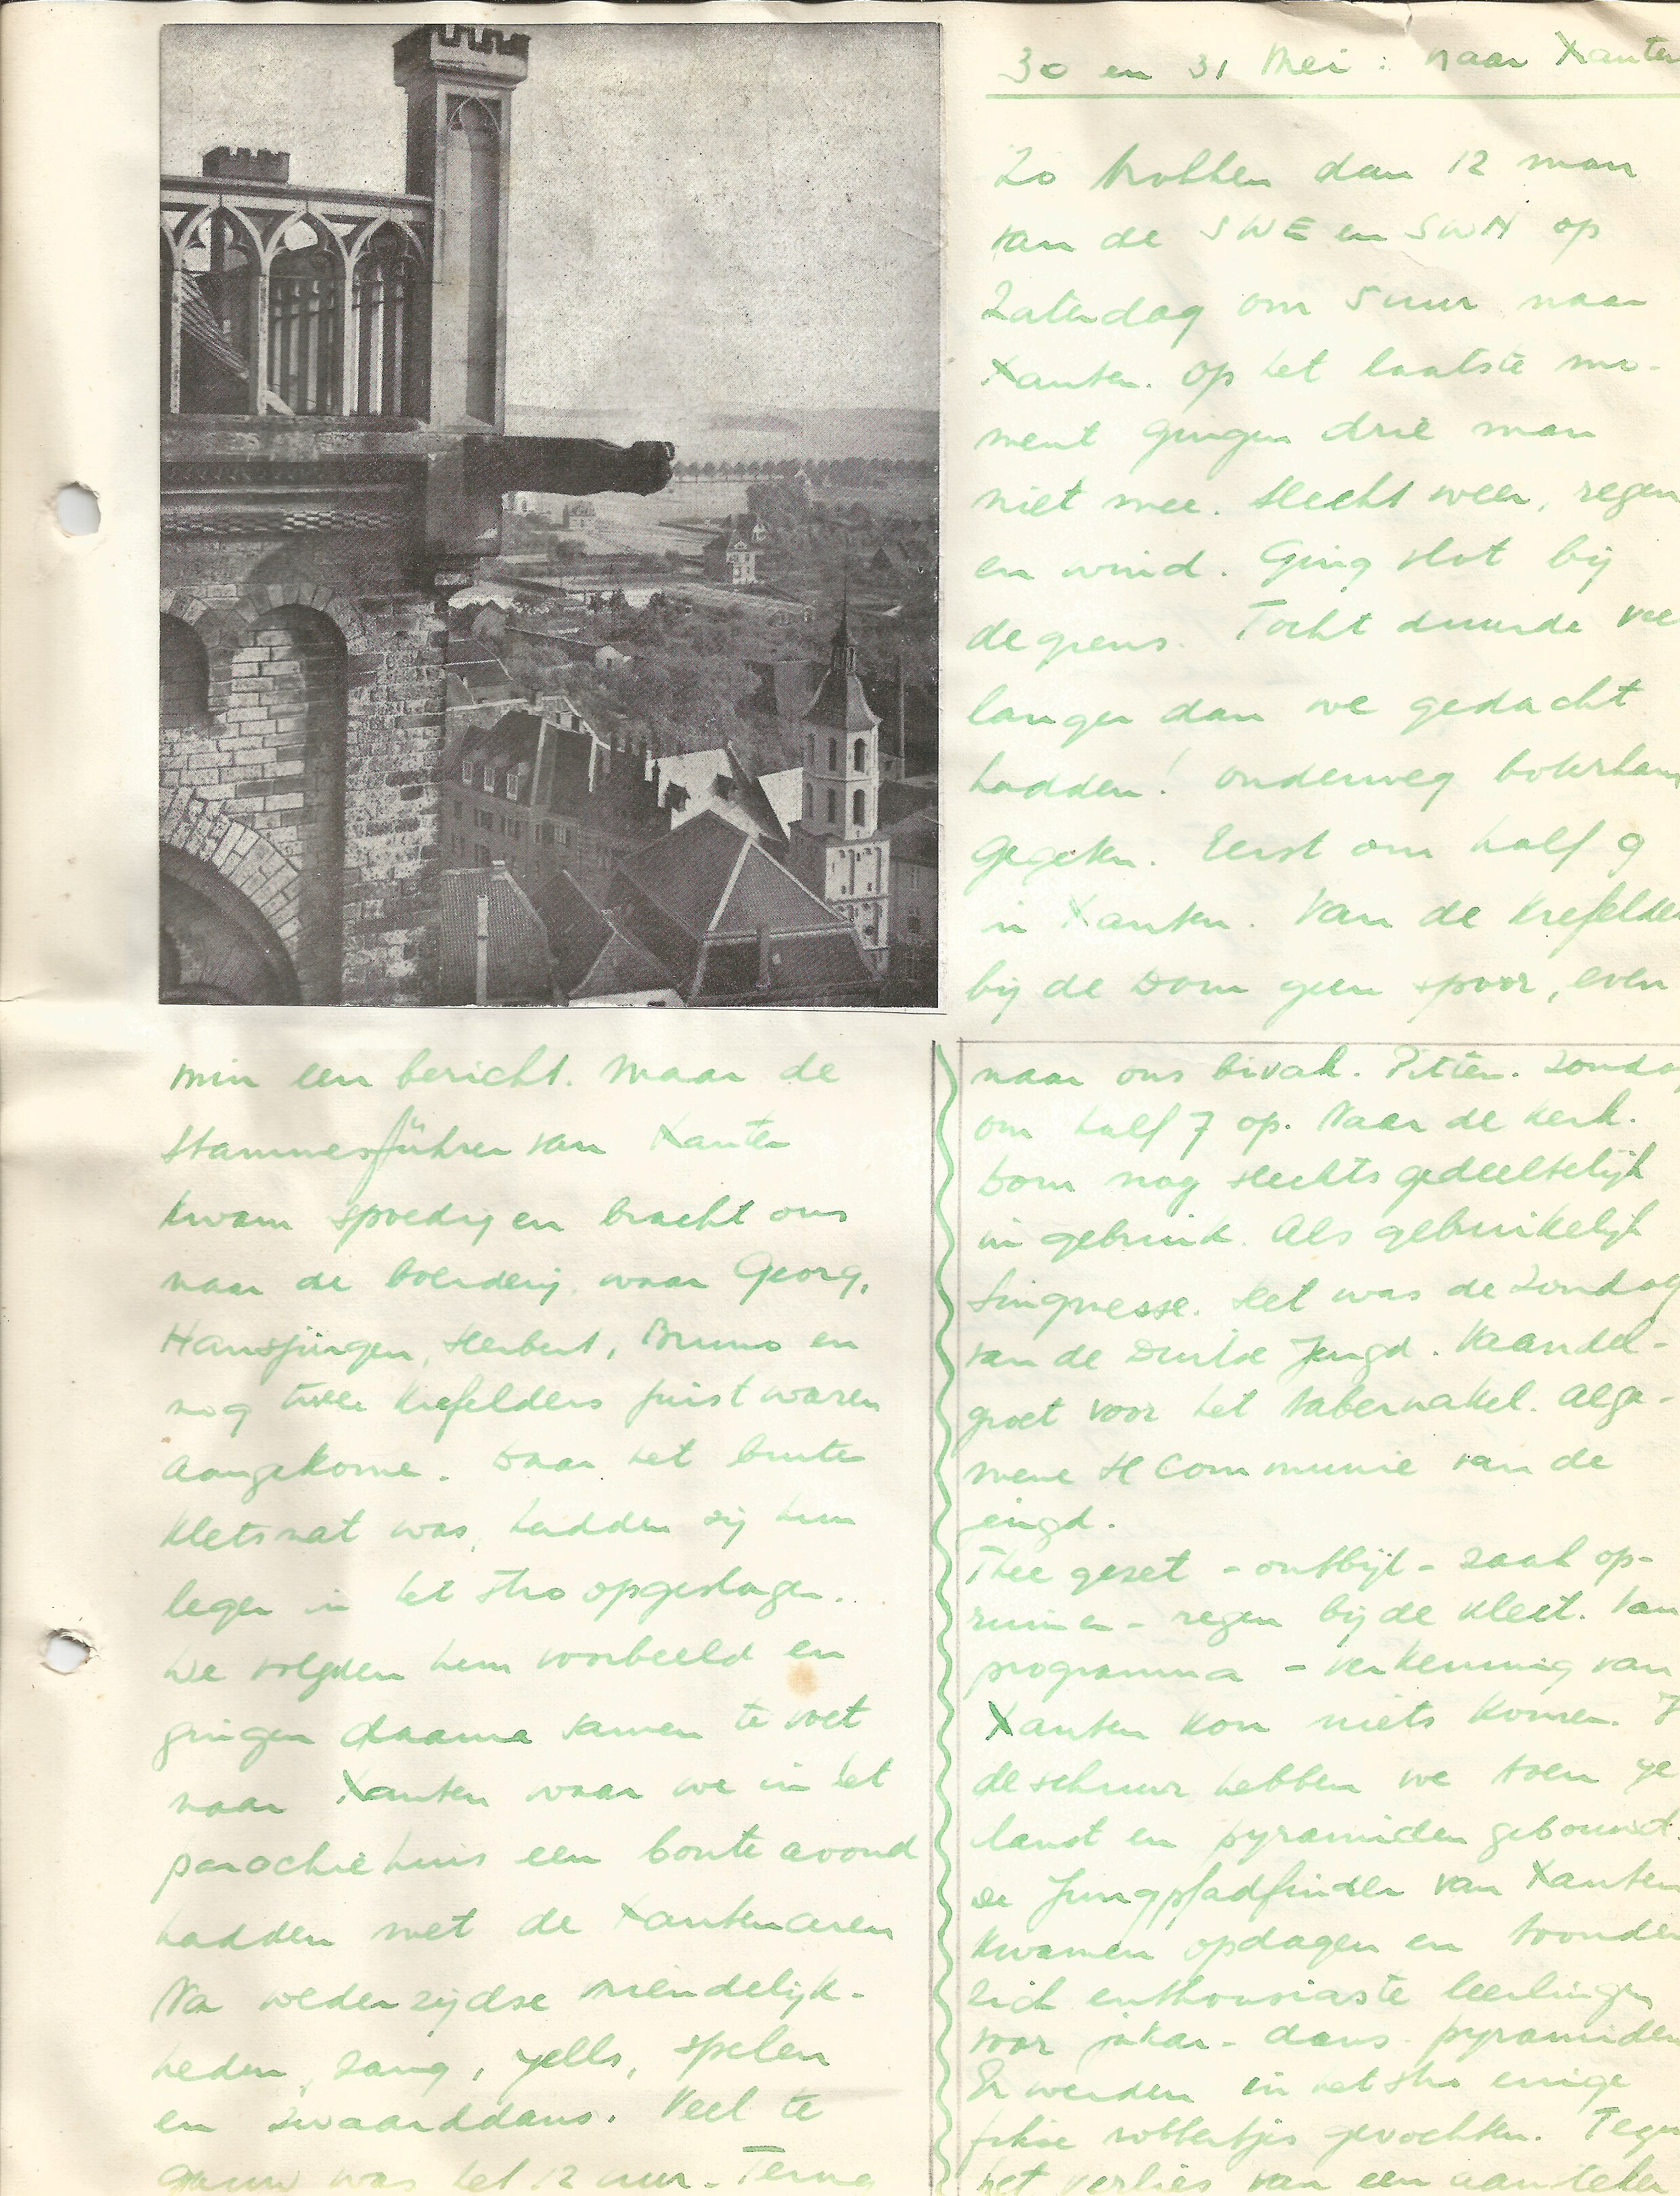 30 en 31 Mei : naar Xanten
Zo trokken dan 12 man
van de SWE en SWN op
Zaterdag om 5 uur naar
Xanten. Op het laatste mo-
ment gingen drie man
niet mee. Slecht weer, regen
en wind. Ging vlot bij
de grens. Tocht duurde vee
langer dan we gedacht
hadden! Onderweg boterham
gegeten. Eerst om half 9
in Xanten. Van de Krefelde
bij de Dom geen spoor, even
min een bericht. Maar de
Stammesführer van Xanten
kwam spoedig en bracht ons
naar de boerderij waar Georg,
Hansjürgen, Herbert, Bruno en
nog twee Krefelders juist waren
aangekome. Daar het buiten
kletsnat was, hadden zij hun
leger in het stro opgeslagen.
We volgden hun voorbeeld en
gingen daarna samen te voet
naar Xanten waar we in het
parochiehuis een bonte avond
hadden met de Xantenaren
Na wederzijdse vriendelijk-
heden, zang, yells, spelen
en zwaarddans. Veel te
gauw was het 12 uur. Terug
naar ons bivak. Pitten. Zondag
om half 7 op. Naar de kerk.
Dom nog slechts gedeeltelijk
in gebruik. Als gebruikelijk
Singmesse. Het was de Zondag
van de Duitse Jeugd. Vaandel-
groet voor het tabernakel. Alge-
mene H Communie van de
jeugd.
Thee gezet - ontbijt - zaal op-
ruimen - regen bij de vleet. Van
programma - verkenning van
Xanten kon niets komen. I
de schuur hebben we toen ge
danst en pyramiden gebouwd.
De Jungpfadfinder van Xanten
kwamen opdagen en toonden
zich enthousiaste leerlingen
voor - dans - pyramiden
Er werden in het stro enige
fikse robbertjes gevochten. Tegen
het verlies van een aanteke